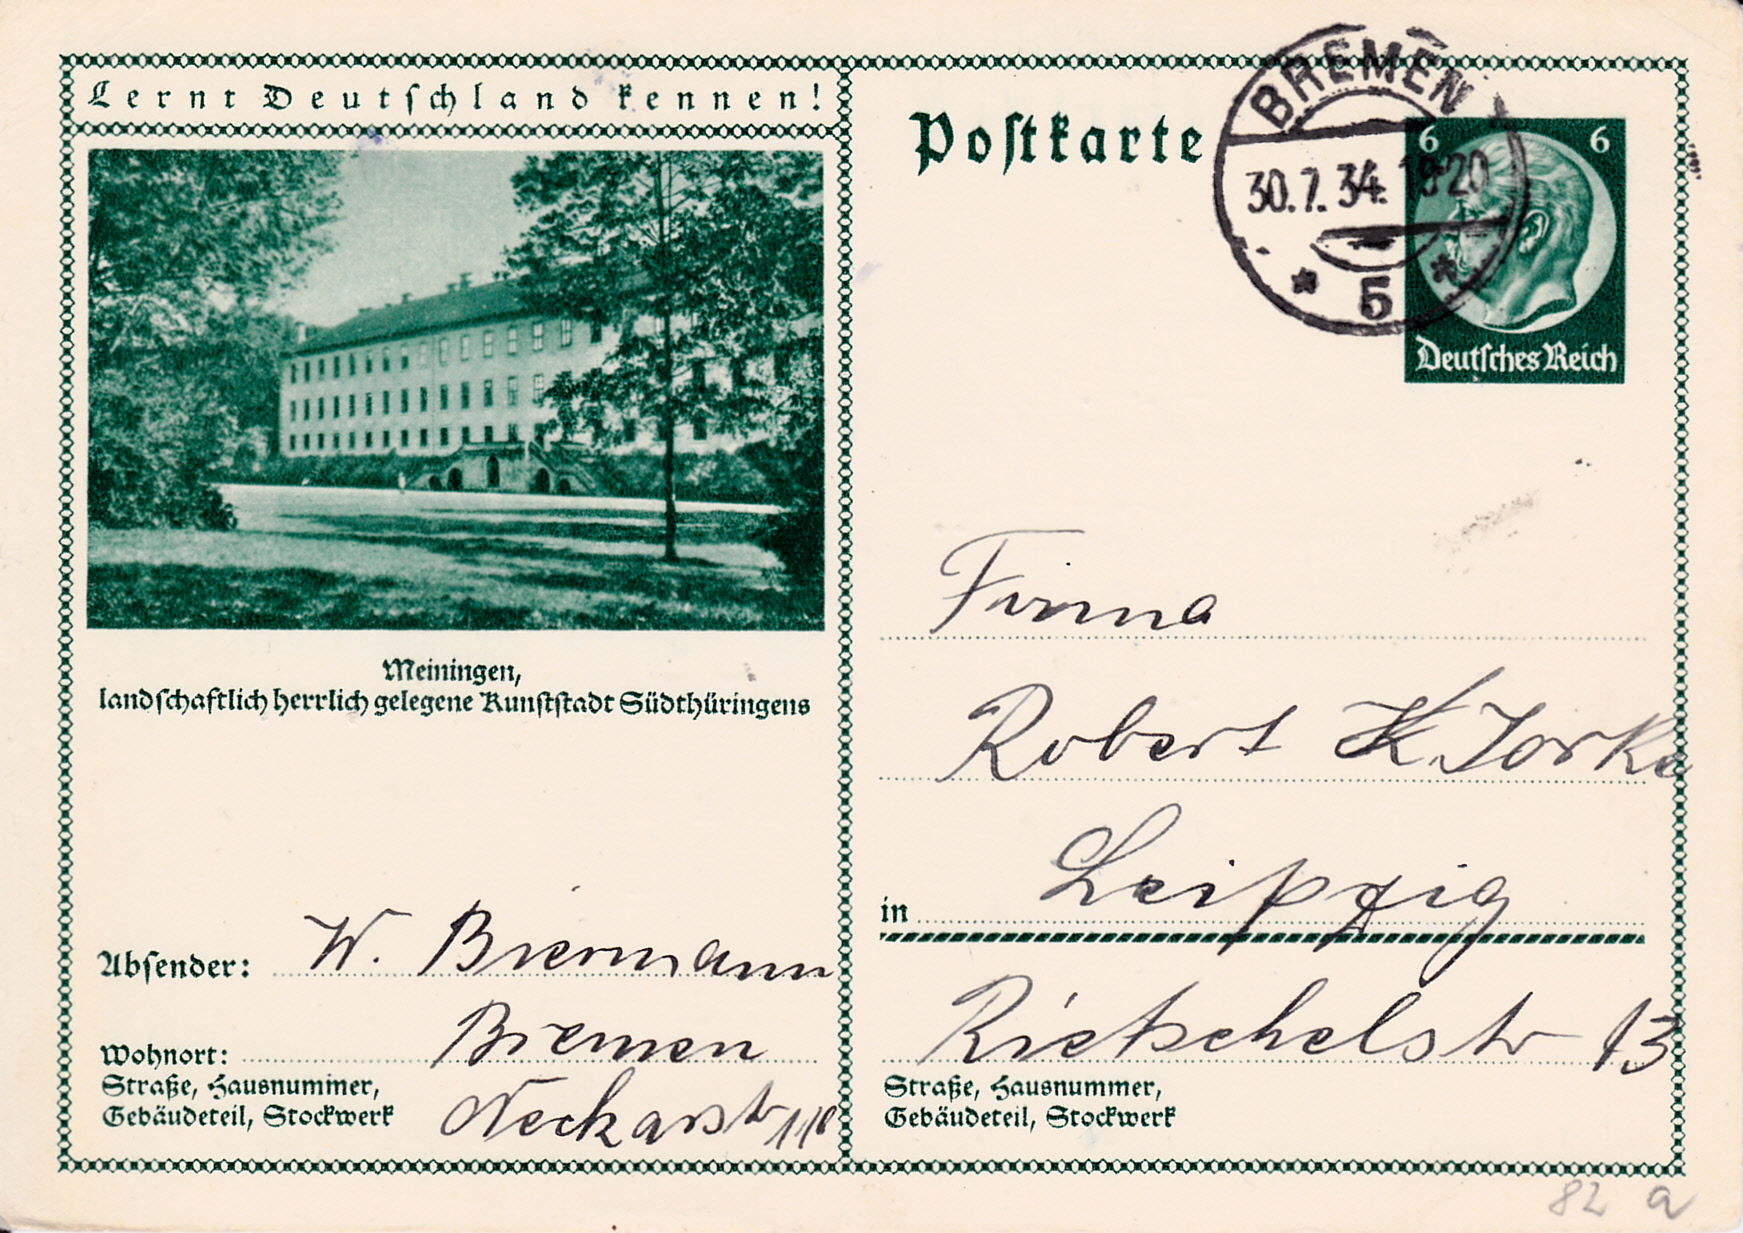 Lernt Deutſchland kennen!
Meiningen,
landſchaftlich herrlich gelegene Kunſtſtadt Südthüringens
Abſender: W. Biermann
Wohnort: Bremen
Straße, Hausnummer,
Gebäudeteil, Stockwerk
Neckarstr
Poſtkarte
BREMEN
30.7.34. 19-20
* 5 *
6 6
Deutſches Reich
Firma
Robert K. Jorke
in Leipzig
Rietschelstr 13
Straße, Hausnummer,
Gebäudeteil, Stockwerk
82 a